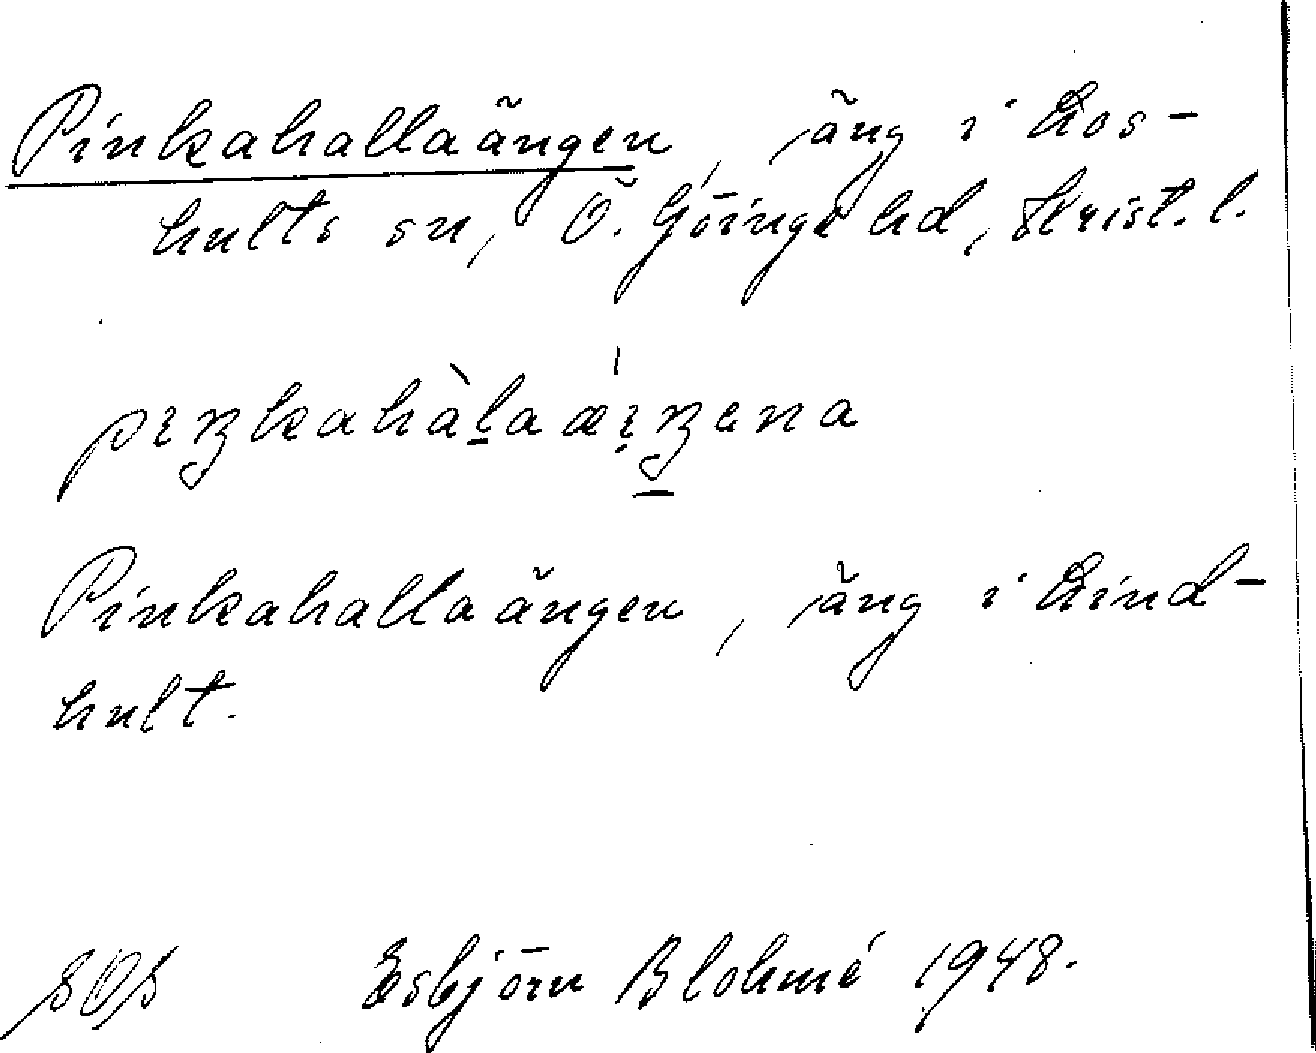 Pinkahallaängen, äng i Los-
hults sn, Ö. Göinge hd, Krist. l.
pıŋkahàl̠aæı̣́ŋ̠ɛna
Pinkahallaängen, äng i Lind-
hult.
Esbjörn Blohmé 1948.